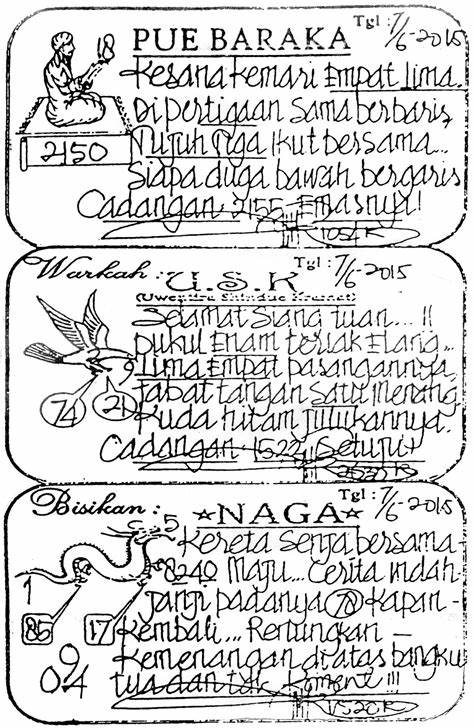 Tgl : 7/6-2015
PUE BARAKA
18
Kesana Kemari Empat lima.
Di pertigaan Sama berbaris
2150
Tujuh Tiga Ikut bersama...
Siapa duga bawah bergaris
Cadangan 2155 Emasnya!
Warkah :
U.S.K
Tgl : 7/6-2015
(Uwentira Shindue Kramat)
Selamat Siang tuan...!!
pukul Enam teriak Elang...
Lima Empat pasangannya,
74
21
Jabat tangan Satu Menang
Kuda hitam julukannya.
Cadangan 1522 Setuju
Bisikan :
Tgl : 7/6-2015
NAGA
C 5
Kereta Senja bersama-
8240 Maju... Cerita indah
1
janji padanya 78 Kapan-
85
17
Kembali... Renungkan -
Kemenangan di atas bangku
9
04
tua dan tak Koment!!!